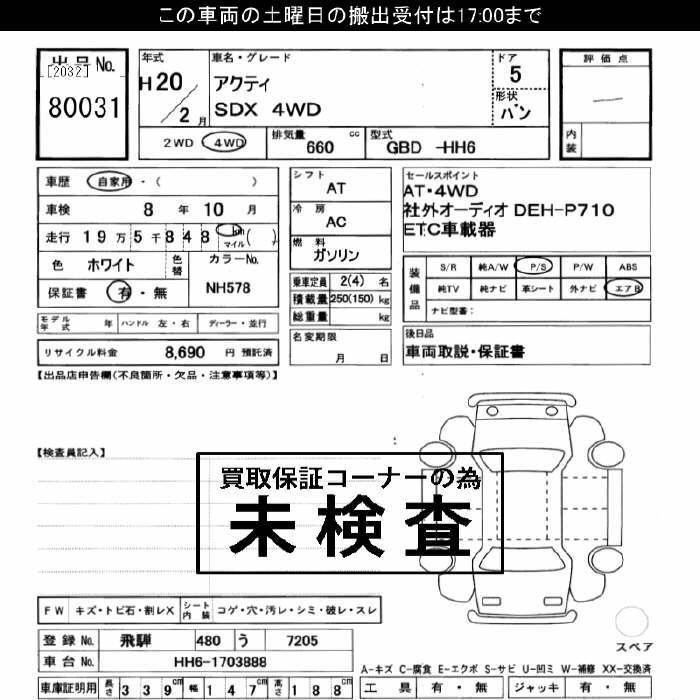 この車両の土曜日の搬出受付は17:00まで
出品No.
[2032]
80031
年式
H20
2月
車名・グレード
アクティ
SDX 4WD
ドア
5
形状
バン
評価点
内装
2WD 4WD
排気量 cc
660
型式
GBD -HH6
車歴 自家用・( )
車検 8年 10月
走行 19万5千848 km マイル ( )
色 ホワイト 色替
カラーNo.
NH578
保証書 有・無
シフト
AT
冷房
AC
燃料
ガソリン
乗車定員 2(4) 名
積載量 250(150) kg
総重量 kg
セールスポイント
AT・4WD
社外オーディオ DEH-P710
ETC車載器
装備品
S/R 純A/W P/S P/W ABS
純TV 純ナビ 革シート 外ナビ エアB
ナビ型番:
モデル年式 年 ハンドル 左・右 ディーラー・並行
リサイクル料金 8,690 円 預託済
名変期限
月 日
後日品
車両取説・保証書
【出品店申告欄(不良箇所・欠品・注意事項等)】
【検査員記入】
買取保証コーナーの為
未検査
FW キズ・トビ石・割レX シート内装 コゲ・穴・汚レ・シミ・破レ・スレ
登録No. 飛騨 480 う 7205
車台No. HH6-1703888
車庫証明用 長さ 339cm 幅 147cm 高さ 188cm
スペア
A-キズ C-腐食 E-エクボ S-サビ U-凹ミ W-補修 XX-交換済
工具 有・無 ジャッキ 有・無